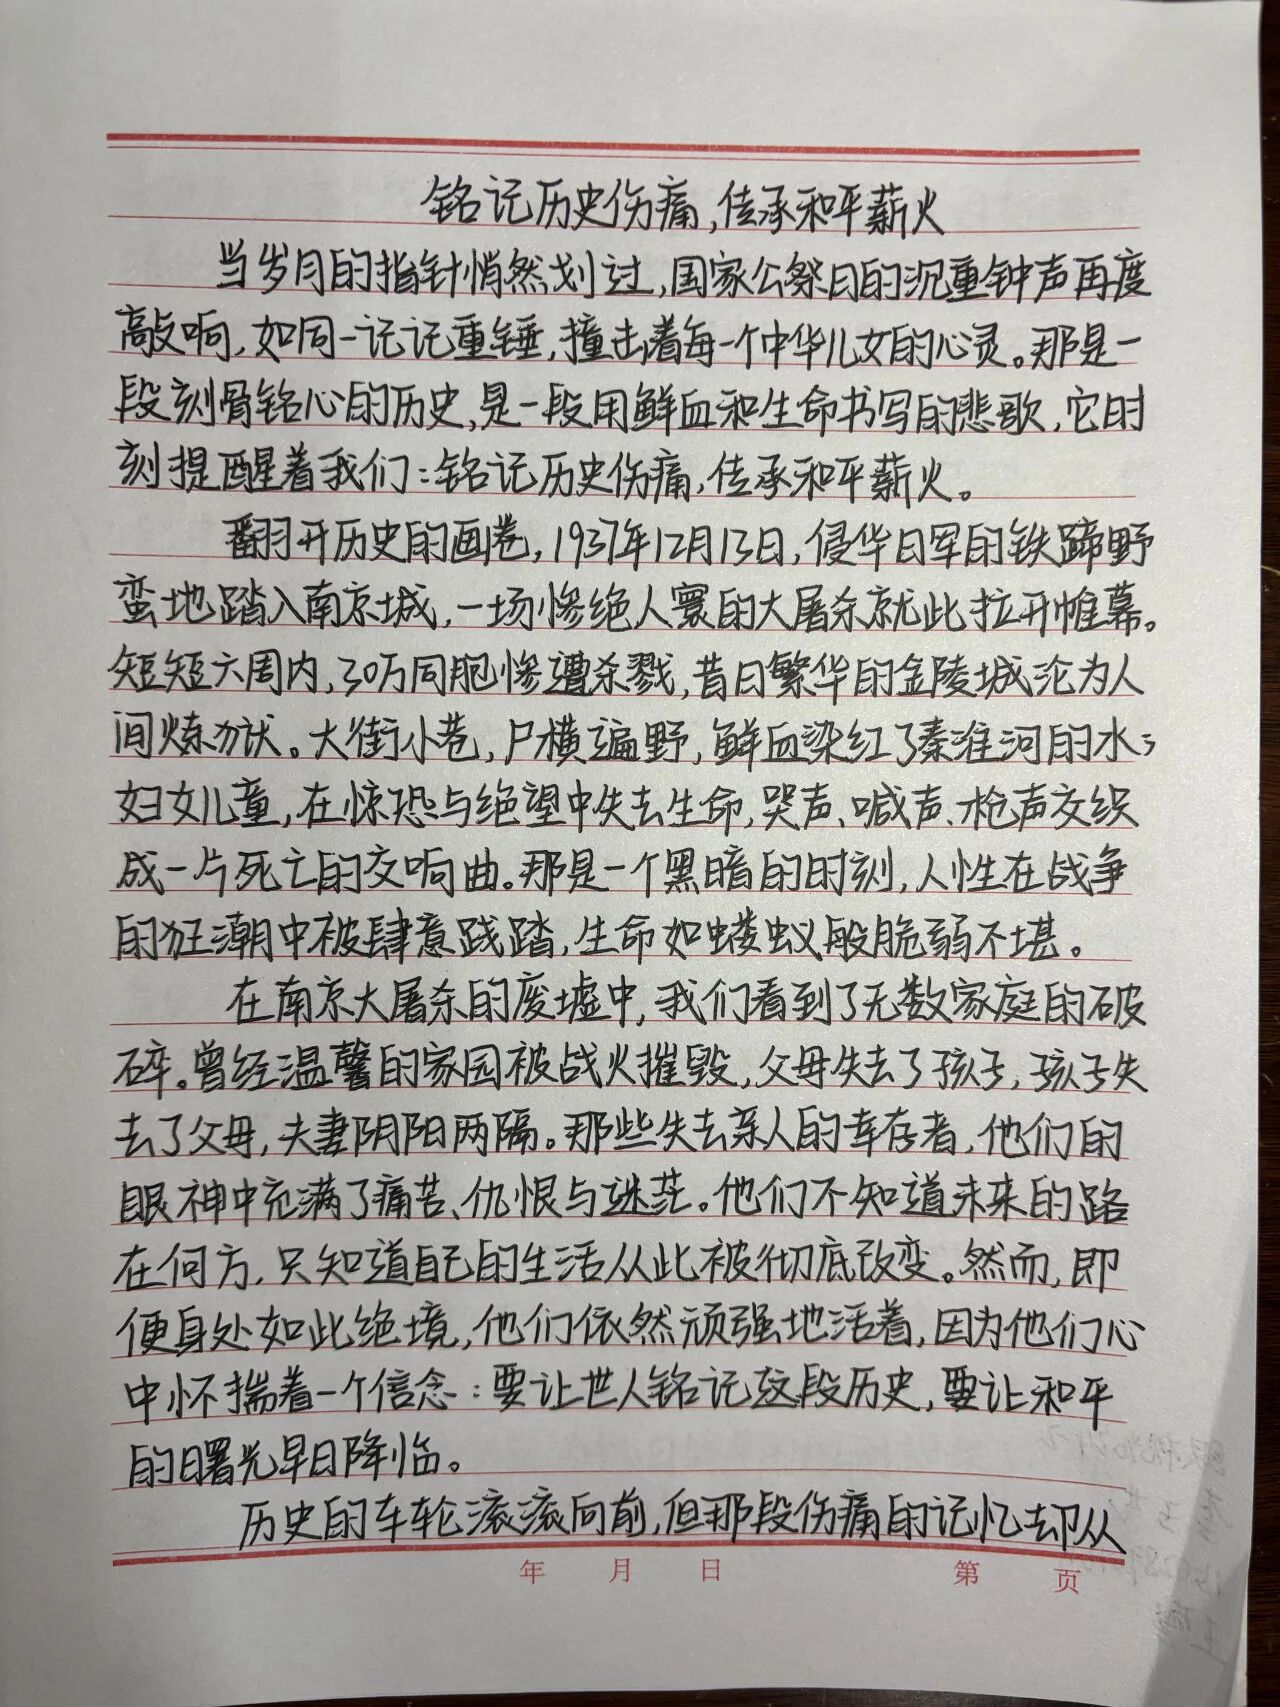 铭记历史伤痛,传承和平薪火
当岁月的指针悄然划过,国家公祭日的沉重钟声再度
敲响,如同一记记重锤,撞击着每一个中华儿女的心灵。那是一
段刻骨铭心的历史,是一段用鲜血和生命书写的悲歌,它时
刻提醒着我们:铭记历史伤痛,传承和平薪火。
翻开历史的画卷,1937年12月13日,侵华日军的铁蹄野
蛮地踏入南京城,一场惨绝人寰的大屠杀就此拉开帷幕。
短短六周内,30万同胞惨遭杀戮,昔日繁华的金陵城沦为人
间炼狱。大街小巷,尸横遍野,鲜血染红了秦淮河的水;
妇女儿童,在惊恐与绝望中失去生命,哭声、喊声、枪声交织
成一片死亡的交响曲。那是一个黑暗的时刻,人性在战争
的狂潮中被肆意践踏,生命如蝼蚁般脆弱不堪。
在南京大屠杀的废墟中,我们看到了无数家庭的破
碎。曾经温馨的家园被战火摧毁,父母失去了孩子,孩子失
去了父母,夫妻阴阳两隔。那些失去亲人的幸存者,他们的
眼神中充满了痛苦、仇恨与迷茫。他们不知道未来的路
在何方,只知道自己的生活从此被彻底改变。然而,即
便身处如此绝境,他们依然顽强地活着,因为他们心
中怀揣着一个信念:要让世人铭记这段历史,要让和平
的曙光早日降临。
历史的车轮滚滚向前,但那段伤痛的记忆却从
年 月 日 第 页